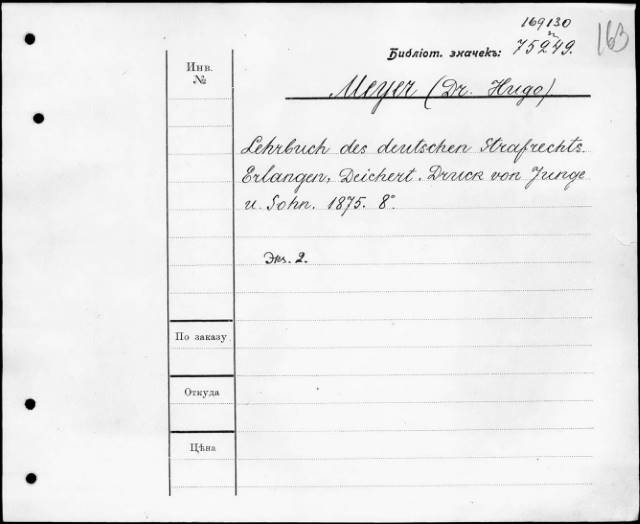 169130
и
Библіот. значекъ: 75249.
163
Инв.
№
Meyer (Dr. Hugo)
Lehrbuch des deutschen Strafrechts.
Erlangen, Deichert. Druck von Junge
u. Sohn. 1875. 8°.
Экз. 2.
По заказу
Откуда
Цѣна